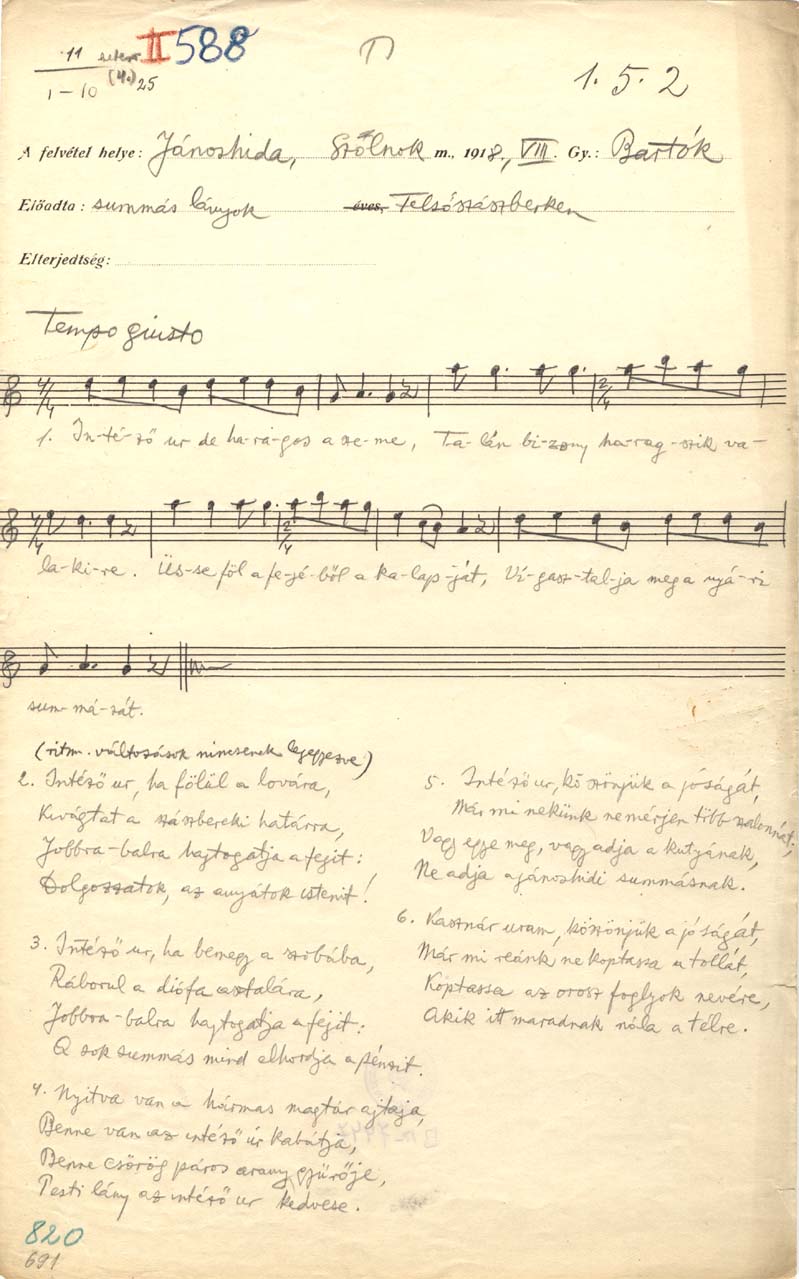 11
I-10
(4.) 25
II 588
1. 5. 2
A felvétel helye: Jánoshida, Szolnok m., 1918., VIII. Gy.: Bartók
Előadta: summás lányok éves, Felsőszászberken
Elterjedtség:
Tempo giusto
4/4 2/4
1. In-té-ző ur de ha-ra-gos a sze-me, Ta-lán bi-zony ha-rag-szik va-
4/4 2/4
la-ki-re. Üs-se föl a fe-jé-ből a ka-lap-ját, Vi-gasz-tal-ja meg a nyá-ri
sum-má-sát.
(ritm. változások nincsenek lejegyezve)
2. Intéző ur, ha fölül a lovára,
Kivágtat a szászbereki határra,
Jobbra-balra hajtogatja a fejit:
Dolgozzatok, az anyátok istenit!
3. Intéző ur, ha bemegy a szobába,
Ráborul a diófa asztalára,
Jobbra-balra hajtogatja a fejit:
A sok summás mind elhordja a pénzit.
4. Nyitva van a hármas magtár ajtaja,
Benne van az intéző úr kabátja,
Benne csörög páros arany gyürője,
Pesti lány az intéző ur kedvese.
5. Intéző ur, köszönjük a jóságát,
Már mi nekünk ne mérjen több szalonnát;
Vagy egye meg, vagy adja a kutyának,
Ne adja a jánoshidi summásnak.
6. Kasznár uram, köszönjük a jóságát,
Már mi reánk ne koptassa a tollát,
Koptassa az orosz foglyok nevére,
Akik itt maradnak nóla a télre.
820
691